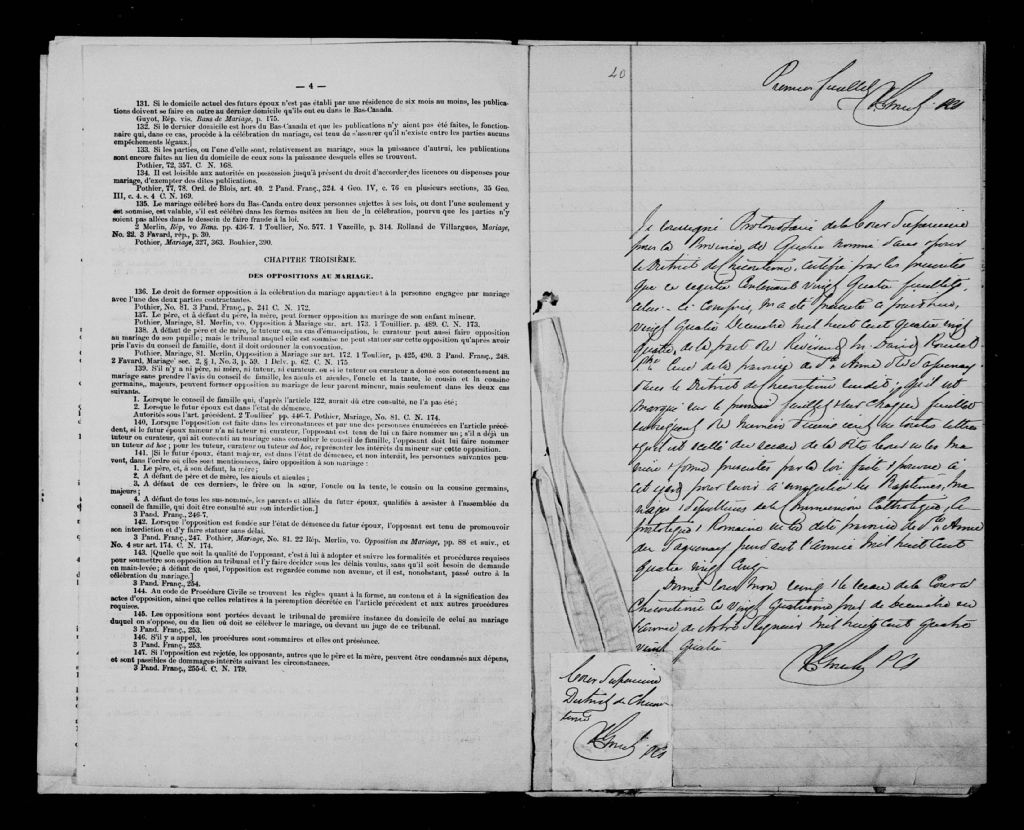 — 4 —
131. Si le domicile actuel des futurs époux n'est pas établi par une résidence de six mois au moins, les publica-
tions doivent se faire en outre au dernier domicile qu'ils ont eu dans le Bas-Canada.
Guyot, Rép. vis. Bans de Mariage, p. 175.
132. Si le dernier domicile est hors du Bas-Canada et que les publications n'y aient pas été faites, le fonction-
naire qui, dans ce cas, procède à la célébration du mariage, est tenu de s'assurer qu'il n'existe entre les parties aucuns
empêchements légaux.]
133. Si les parties, ou l'une d'elle sont, relativement au mariage, sous la puissance d'autrui, les publications
sont encore faites au lieu du domicile de ceux sous la puissance desquels elles se trouvent.
Pothier, 72, 357. C. N. 168.
134. Il est loisible aux autorités en possession jusqu'à présent du droit d'accorder des licences ou dispenses pour
mariage, d'exempter des dites publications.
Pothier, 77, 78. Ord. de Blois, art. 40. 2 Pand. Franç., 324. 4 Geo. IV, c. 76 en plusieurs sections, 35 Geo.
III, c. 4. s. 4 C. N. 169.
135. Le mariage célébré hors du Bas-Canda entre deux personnes sujettes à ses lois, ou dont l'une seulement y
est soumise, est valable, s'il est célébré dans les formes usitées au lieu de la célébration, pourvu que les parties n'y
soient pas allées dans le dessein de faire fraude à la loi.
2 Merlin, Rép, vo Bans. pp. 436-7. 1 Toullier, No. 577. 1 Vazeille, p. 314. Rolland de Villargues, Mariage,
No. 22. 3 Favard, rép., p. 30.
Pothier, Mariage, 327, 363. Bouhier, 390.
CHAPITRE TROISIÈME.
DES OPPOSITIONS AU MARIAGE.
136. Le droit de former opposition à la célébration du mariage appartient à la personne engagée par mariage
avec l'une des deux parties contractantes.
Pothier, No. 81. 3 Pand. Franç., p. 241 C. N. 172.
137. Le père, et à défaut du père, la mère, peut former opposition au mariage de son enfant mineur.
Pothier, Mariage, 81. Merlin, vo. Opposition à Mariage sur. art. 173. 1 Touillier. p. 489. C. N. 173.
138. A défaut de père et de mère, le tuteur ou, au cas d'émancipation, le curateur peut aussi faire opposition
au mariage de son pupille; mais le tribunal auquel elle est soumise ne peut statuer sur cette opposition qu'après avoir
pris l'avis du conseil de famille, dont il doit ordonner la convocation.
Pothier, Mariage, 81. Merlin, Opposition à Mariage sur art. 172. 1 Toulier, p. 425, 490. 3 Pand. Franç., 248.
2 Favard, Mariage' sec. 2, § 1, No. 3, p. 59. 1 Delv. p. 62. C. N. 175
139. S'il n'y a ni père, ni mère, ni tuteur, ni curateur, ou si le tuteur ou curateur a donné son consentement au
mariage sans prendre l'avis du conseil de famille, les aieuls et aieules, l'oncle et la tante, le cousin et la cousine
germains,, majeurs, peuvent former opposition au mariage de leur parent mineur, mais seulement dans les deux cas
suivants.
1. Lorsque le conseil de famille qui, d'après l'article 122, aurait dû être consulté, ne l'a pas été;
2. Lorsque le futur époux est dans l'état de démence.
Autorités sous l'art. précédent. 2 Toulier' pp. 446-7. Pothier, Mariage, No. 81. C. N. 174.
140. Lorsque l'opposition est faite dans les circonstances et par une des personnes énumérées en l'article précé-
dent, si le futur époux mineur n'a ni tuteur ni curateur, l'opposant est tenu de lui en faire nommer un; s'il a déjà un
tuteur ou curateur, qui ait consenti au mariage sans consulter le conseil de famille, l'opposant doit lui faire nommer
un tuteur ad hoc; pour les tuteur, curateur ou tuteur ad hoc, représenter les intérêts du mineur sur cette opposition.
141. [Si le futur époux, étant majeur, est dans l'état de démence, et non interdit, les personnes suivantes peu-
vent, dans l'ordre où elles sont mentionnées, faire opposition à son mariage:
1. Le père, et, à son défaut, la mère;
2. A défaut de père et de mère, les aieuls et aieules;
3. A défaut de ces derniers, le frère ou la sœur, l'oncle ou la tente, le cousin ou la cousine germains,
majeurs;
4. A défaut de tous les sus-nommés, les parents et alliés du futur époux, qualifiés à assister à l'assemblée du
conseil de famille, qui doit être consulté sur son interdiction.]
3 Pand. Franç., 246-7.
142. Lorsque l'opposition est fondée sur l'état de démence du futur époux, l'opposant est tenu de promouvoir
son interdiction et d'y faire statuer sans délai.
3 Pand. Franç., 247. Pothier, Mariage, No. 81. 22 Rép. Merlin, vo. Opposition au Mariage, pp. 88 et suiv., et
No. 4 sur art. 174. C. N. 174.
143. [Quelle que soit la qualité de l'opposant, c'est à lui à adopter et suivre les formalités et procédures requises
pour soumettre son opposition au tribunal et l'y faire décider sous les délais voulus, sans qu'il soit besoin de demande
en main-levée; à défaut de quoi, l'opposition est regardée comme non avenue, et il est, nonobstant, passé outre à la
célébration du mariage.]
3 Pand. Franç., 254.
144. Au code de Procédure Civile se trouvent les règles quant à la forme, au contenu et à la signification des
actes d'opposition, ainsi que celles relatives à la péremption décrétée en l'article précédent et aux autres procédures
requises.
145. Les oppositions sont portées devant le tribunal de première instance du domicile de celui au mariage
duquel on s'oppose, ou du lieu où doit se célébrer le mariage, ou devant un juge de ce tribunal.
3 Pand. Franç., 253.
146. S'il y a appel, les procédures sont sommaires et elles ont préséance.
3 Pand. Franç., 253.
147. Si l'opposition est rejetée, les opposants, autres que le père et la mère, peuvent être condamnés aux dépens,
et sont passibles de dommages-intérêts suivant les circonstances.
3 Pand. Franç., 255-6. C. N. 179.
20
Premier feuillet
Je soussigné Protonotaire de la Cour Supérieure
pour la Province de Québec nommé dans & pour
le District de Chicoutimi, certifie par les présentes
que ce registre contenant vingt quatre feuillets,
celui-ci compris, m'a été présenté ce jourd'hui,
vingt quatre Décembre mil huit cent quatre vingt
quatre, de la part du Révérend M. David Roussel
Ptre Curé de la paroisse de Ste Anne du Saguenay
dans le District de Chicoutimi susdit; qu'il est
marqué sur le premier feuillet & sur chaque feuillet
subséquent du numéro d'icelui en toutes lettres
& qu'il est scellé du sceau de la dite Cour en la ma-
nière & forme prescrites par la loi faite & pourvue à
cet égard pour servir à enregistrer les Baptêmes, Ma-
riages & Sépultures de la Communion Catholique,
Romaine en la dite paroisse de Ste Anne
du Saguenay pendant l'année mil huit cent
quatre vingt cinq.
Donné sous mon seing & le sceau de la Cour à
Chicoutimi le vingt quatrième jour de Décembre en
l'année de Notre Seigneur mil huit cent quatre
vingt quatre
PCS
Cour Supérieure
District de Chicou-
timi
PCS